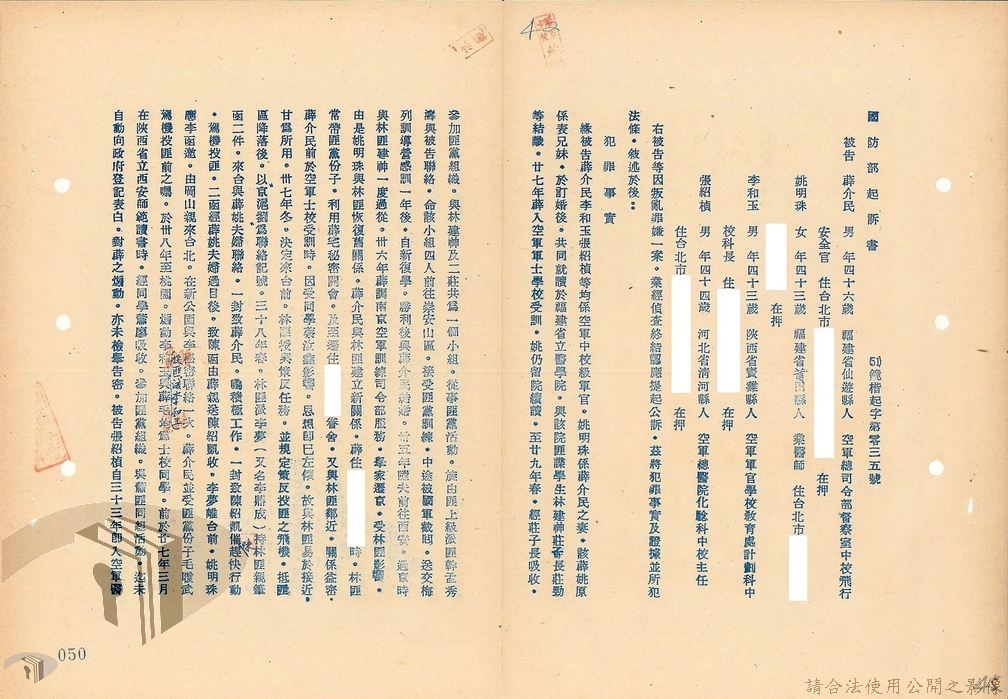 國防部起訴書
51範楷起字第零三五號
被告 薛介民 男 年四十六歲 福建省仙遊縣人 空軍總司令部督察室中校飛行
安全官 住台北市 在押
姚明珠 女 年四十三歲 福建省 縣人 業醫師 住台北市
在押
李和玉 男 年四十三歲 陝西省寶雞縣人 空軍軍官學校教育處計劃科中
校科長 住 在押
張紹楨 男 年四十四歲 河北省清河縣人 空軍總醫院化驗科中校主任
住台北市 在押
右被告等因叛亂罪嫌一案,業經偵查終結認應提起公訴,茲將犯罪事實及證據並所犯
法條,敘述於後:
犯罪事實
緣被告薛介民李和玉張紹楨等均係空軍中校級軍官,姚明珠係薛介民之妻,該薛姚原
係表兄妹,於訂婚後,共同就讀於福建省立醫學院,與該院匪諜學生林建神莊子長莊勁
等結識,廿七年薛入空軍軍士學校受訓,姚仍留院續讀,至廿九年春,經莊子長吸收,
參加匪黨組織,與林建神及二莊共為一個小組,從事匪黨活動,旋由匪上級派匪幹孟秀
濤與被告聯絡,命該小組四人前往崇安山區,接受匪黨訓練,中途被國軍截回,送交梅
列訓導營感訓一年後,自新復學,勝利後與薛介民結婚,卅五年隨夫前往西安,過京時
與林匪建神一度過從,卅六年薛調南京空軍訓練司令部服務,舉家遷京,受林匪影響,
由是姚明珠與林匪恢復舊關係,薛介民與林匪建立新關係,薛住 時,林匪
常帶匪黨份子,利用薛宅秘密開會,及至遷住 眷舍,又與林匪鄰近,關係益密,
薛介民前於空軍士校受訓時,因受同學蔡汝鑫影響,思想即已左傾,故與林匪易於接近,
甘為所用,卅七年冬,決定來台前,林匪授與策反任務,並規定策反投匪之飛機,抵匪
區降落後,以京滬劉為聯絡記號,三十八年春,林匪派李夢(又名李鼎成)持林匪親筆
函二件,來台與薛姚夫婦聯絡,一封致薛介民,囑積極工作,一封致陳紹凱催趕快行動
,駕機投匪,二函經薛姚夫婦過目後,致陳函由薛親送陳紹凱收,李夢離台前,姚明珠
應李函邀,由岡山親來台北,在新公園與李秘密聯絡一次,薛介民並受匪黨份子毛履武
駕機投匪前之囑,於卅八年至桃園,煽動李和玉 為士校同學,前於廿七年三月
在陝西省立西安師範讀書時,經同學蕭 吸收,參加匪黨組織,與蕭匪同組活動,迄未
自動向政府登記表白,對薛之煽動,亦未檢舉告密,被告張紹楨自三十三年即入空軍醫
050
請合法使用公開之影像